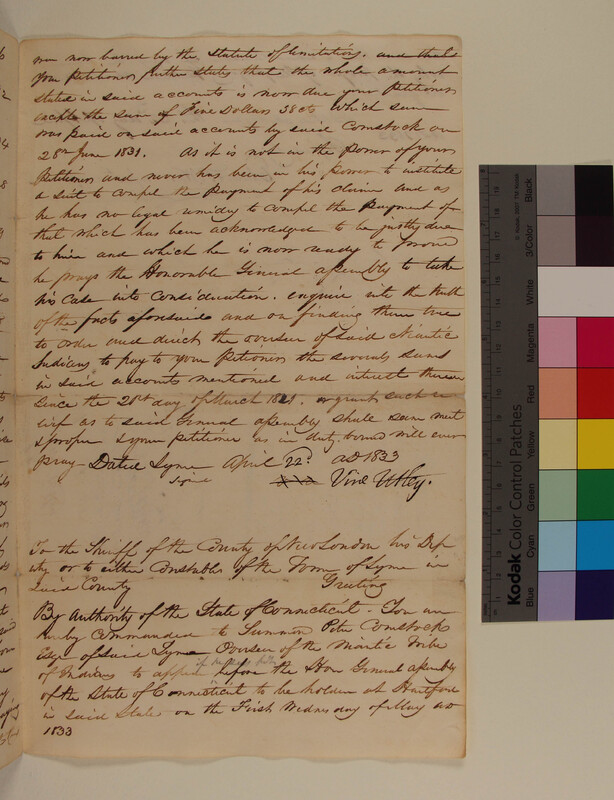 now barred by the Statute of limitations. and that
your Petitioner further States that the whole amount
stated in said accounts is now due your Petitioner
except the sum of Five Dollars 38 cts which sum
was paid on said accounts by said Comstock on
28th June 1831. As it is not in the power of your
Petitioner and never has been in his power to institute
a suit to compel the payment of his claim and as
he has no legal remidy to compel the payment of
that which has been acknowledged to be justly due
to him and which he is now ready to prove
he prays the Honorable General assembly to take
his case into consideration. enquire into the truth
of the facts aforesaid and on finding them true
to order and direct the overseer of said Niantic
Indians to pay to your Petitioner the several sums
in said accounts mentioned and interest thereon
since the 28th day of March 1821. or grant such re
lief as to said General assembly shall seem meet
& proper & your petitioner as in duty bound will ever
pray - Dated Lyme April 22d AD 1833
Signed Vine Utley.
To the Sheriff of the County of New London his Dep
uty or to either Constable of the Town of Lyme in
said County Greeting
By Authority of the State of Connecticut. You are
hereby Commanded to Summon Peter Comstock
Esqr of said Lyme Overseer of the Niantic Tribe
of Indians to appear before the Hon General assembly
of the State of Connecticut to be holden at Hartford
in said State on the First Wednesday of May AD
1833
Kodak Color Control Patches
© Kodak, 2007 TM: Kodak
Blue
Cyan
Green
Yellow
Red
Magenta
White
3/Color
Black